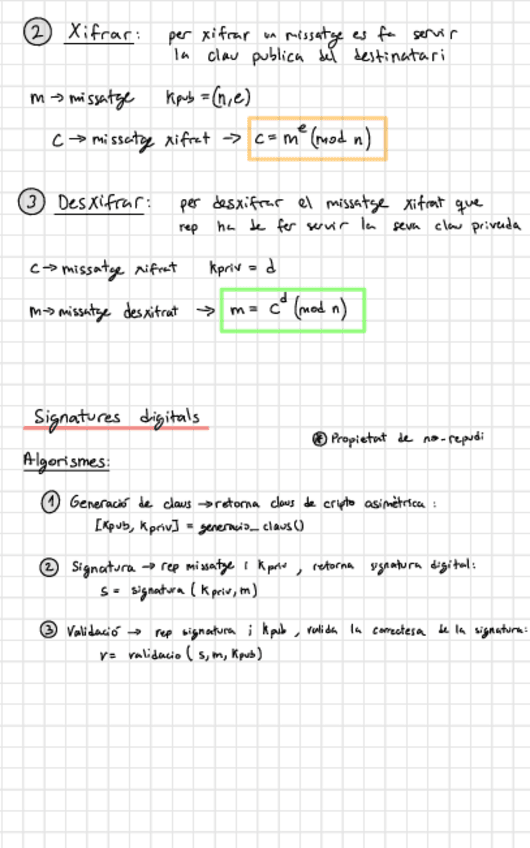 ② Xifrar: per xifrar un missatge es fa servir
la clau publica del destinatari
m → missatge Kpub = (n,e)
c → missatge xifrat → c = m^e (mod n)
③ Desxifrar: per desxifrar el missatge xifrat que
rep ha de fer servir la seva clau privada
c → missatge xifrat Kpriv = d
m → missatge desxifrat → m = c^d (mod n)
Signatures digitals
⊛ Propietat de no-repudi
Algorismes:
① Generació de claus → retorna claus de cripto asimètrica:
[Kpub, Kpriv] = generacio_claus()
② Signatura → rep missatge i Kpriv, retorna signatura digital:
s = signatura (Kpriv, m)
③ Validació → rep signatura i Kpub, valida la correctesa de la signatura:
v = validacio (s, m, Kpub)